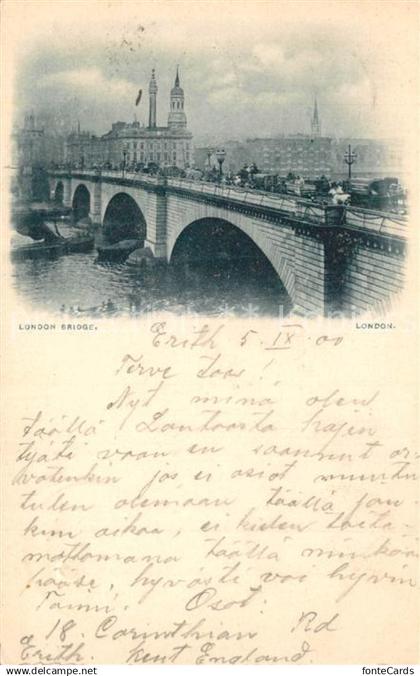 LONDON BRIDGE. LONDON.
Erith 5.IX.00
Terve taas!
Nyt minä olen
täällä Lontoosta
vaan en saanut
jos ei
tulen olemaan täällä jon
kin aikaa, ei kielen taita-
mattomana täällä minkää
hyvästi voi hyvin
Toimi. Osot.
18. Corinthian Rd
Erith. Kent England.
www.fonteCards.com